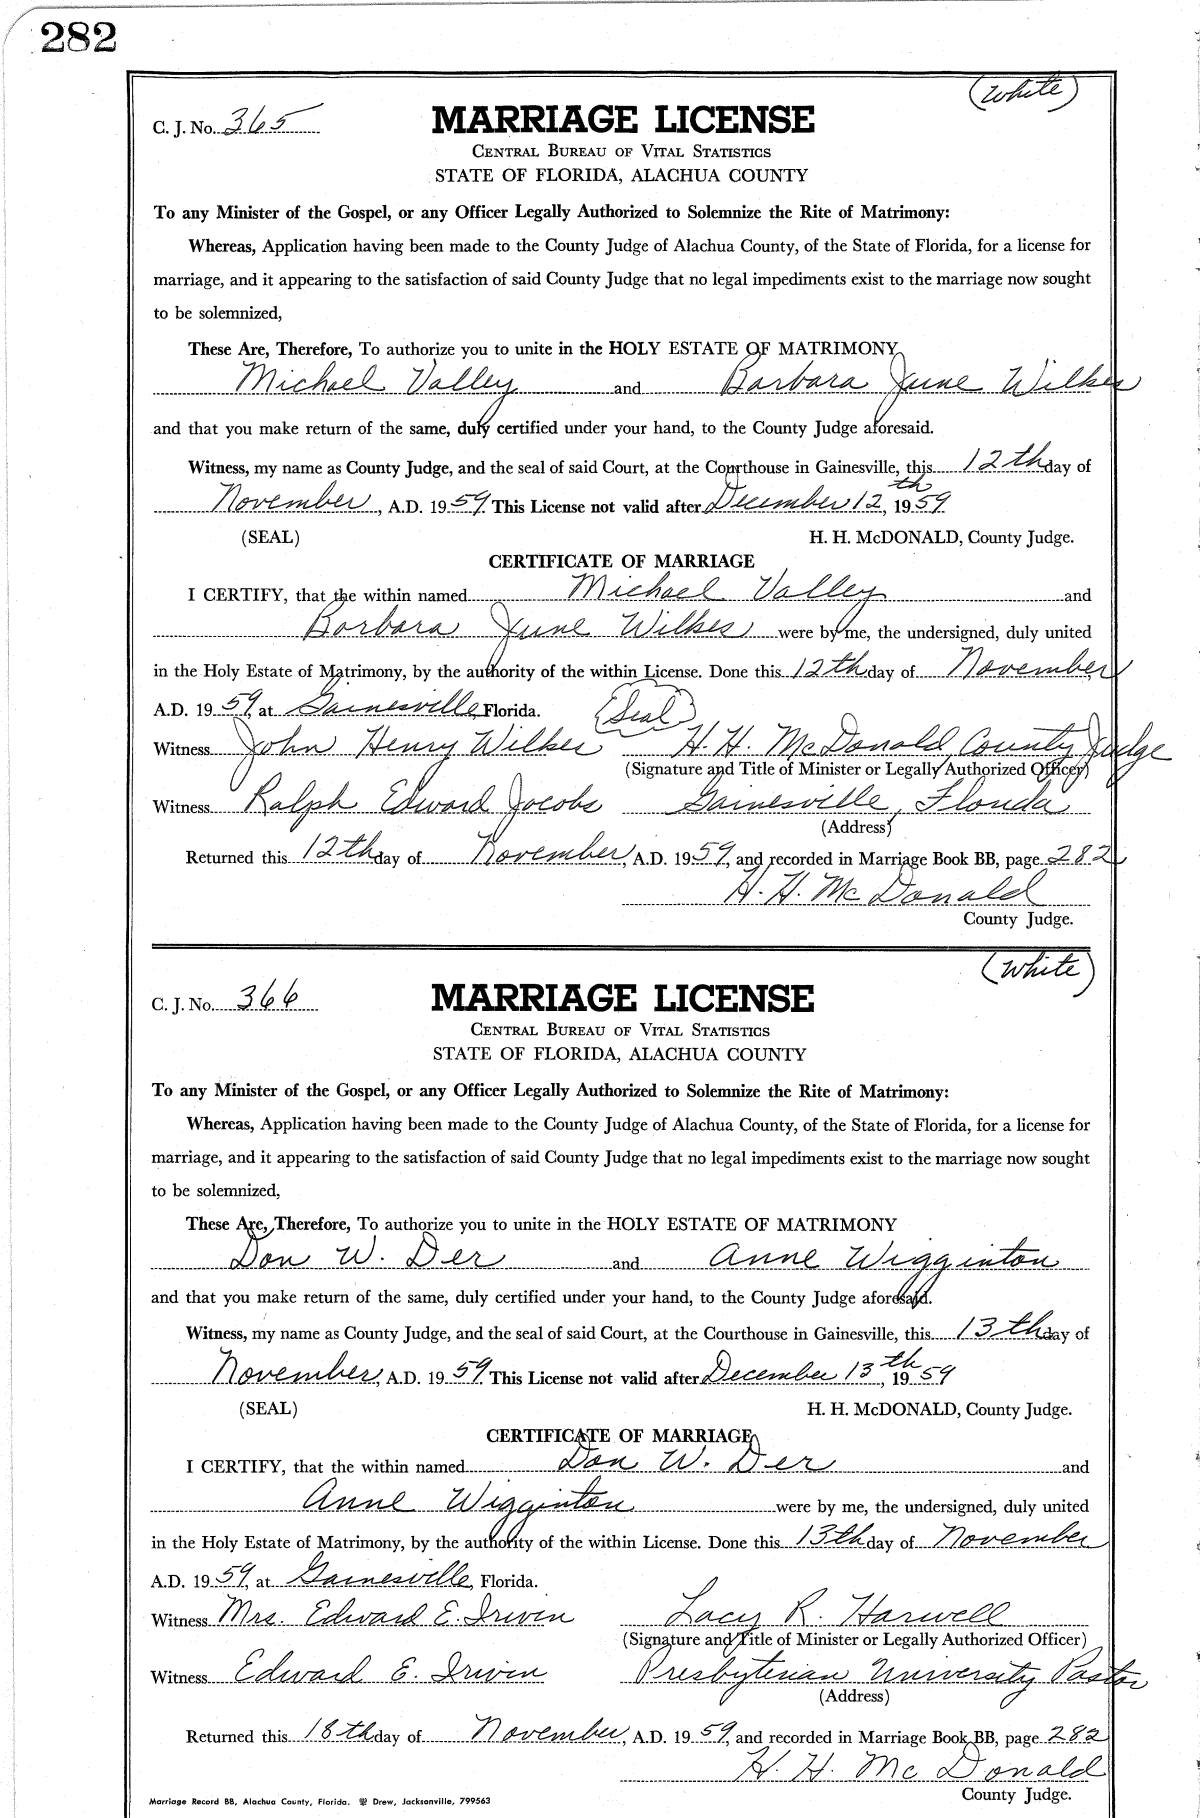 282
(White)
C. J. No. 365
MARRIAGE LICENSE
CENTRAL BUREAU OF VITAL STATISTICS
STATE OF FLORIDA, ALACHUA COUNTY
To any Minister of the Gospel, or any Officer Legally Authorized to Solemnize the Rite of Matrimony:
Whereas, Application having been made to the County Judge of Alachua County, of the State of Florida, for a license for
marriage, and it appearing to the satisfaction of said County Judge that no legal impediments exist to the marriage now sought
to be solemnized,
These Are, Therefore, To authorize you to unite in the HOLY ESTATE OF MATRIMONY
Michael Valley and Barbara June Wilkes
and that you make return of the same, duly certified under your hand, to the County Judge aforesaid.
Witness, my name as County Judge, and the seal of said Court, at the Courthouse in Gainesville, this 12th day of
November, A.D. 1959. This License not valid after December 12th, 1959
(SEAL) H. H. McDONALD, County Judge.
CERTIFICATE OF MARRIAGE
I CERTIFY, that the within named Michael Valley and
Barbara June Wilkes were by me, the undersigned, duly united
in the Holy Estate of Matrimony, by the authority of the within License. Done this 12th day of November
A.D. 1959, at Gainesville, Florida. (Seal)
Witness John Henry Wilkes H. H. McDonald, County Judge
(Signature and Title of Minister or Legally Authorized Officer)
Witness Ralph Edward Jacobs Gainesville, Florida
(Address)
Returned this 12th day of November, A.D. 1959, and recorded in Marriage Book BB, page 282
H. H. McDonald
County Judge.
(White)
C. J. No. 366
MARRIAGE LICENSE
CENTRAL BUREAU OF VITAL STATISTICS
STATE OF FLORIDA, ALACHUA COUNTY
To any Minister of the Gospel, or any Officer Legally Authorized to Solemnize the Rite of Matrimony:
Whereas, Application having been made to the County Judge of Alachua County, of the State of Florida, for a license for
marriage, and it appearing to the satisfaction of said County Judge that no legal impediments exist to the marriage now sought
to be solemnized,
These Are, Therefore, To authorize you to unite in the HOLY ESTATE OF MATRIMONY
Don W. Der and Anne Wigginton
and that you make return of the same, duly certified under your hand, to the County Judge aforesaid.
Witness, my name as County Judge, and the seal of said Court, at the Courthouse in Gainesville, this 13th day of
November, A.D. 1959. This License not valid after December 13th, 1959
(SEAL) H. H. McDONALD, County Judge.
CERTIFICATE OF MARRIAGE
I CERTIFY, that the within named Don W. Der and
Anne Wigginton were by me, the undersigned, duly united
in the Holy Estate of Matrimony, by the authority of the within License. Done this 13th day of November
A.D. 1959, at Gainesville, Florida.
Witness Mrs. Edward E. Irwin Lacy R. Harwell
(Signature and Title of Minister or Legally Authorized Officer)
Witness Edward E. Irwin Presbyterian University Pastor
(Address)
Returned this 18th day of November, A.D. 1959, and recorded in Marriage Book BB, page 282
H. H. McDonald
County Judge.
Marriage Record BB, Alachua County, Florida. Drew, Jacksonville, 799563